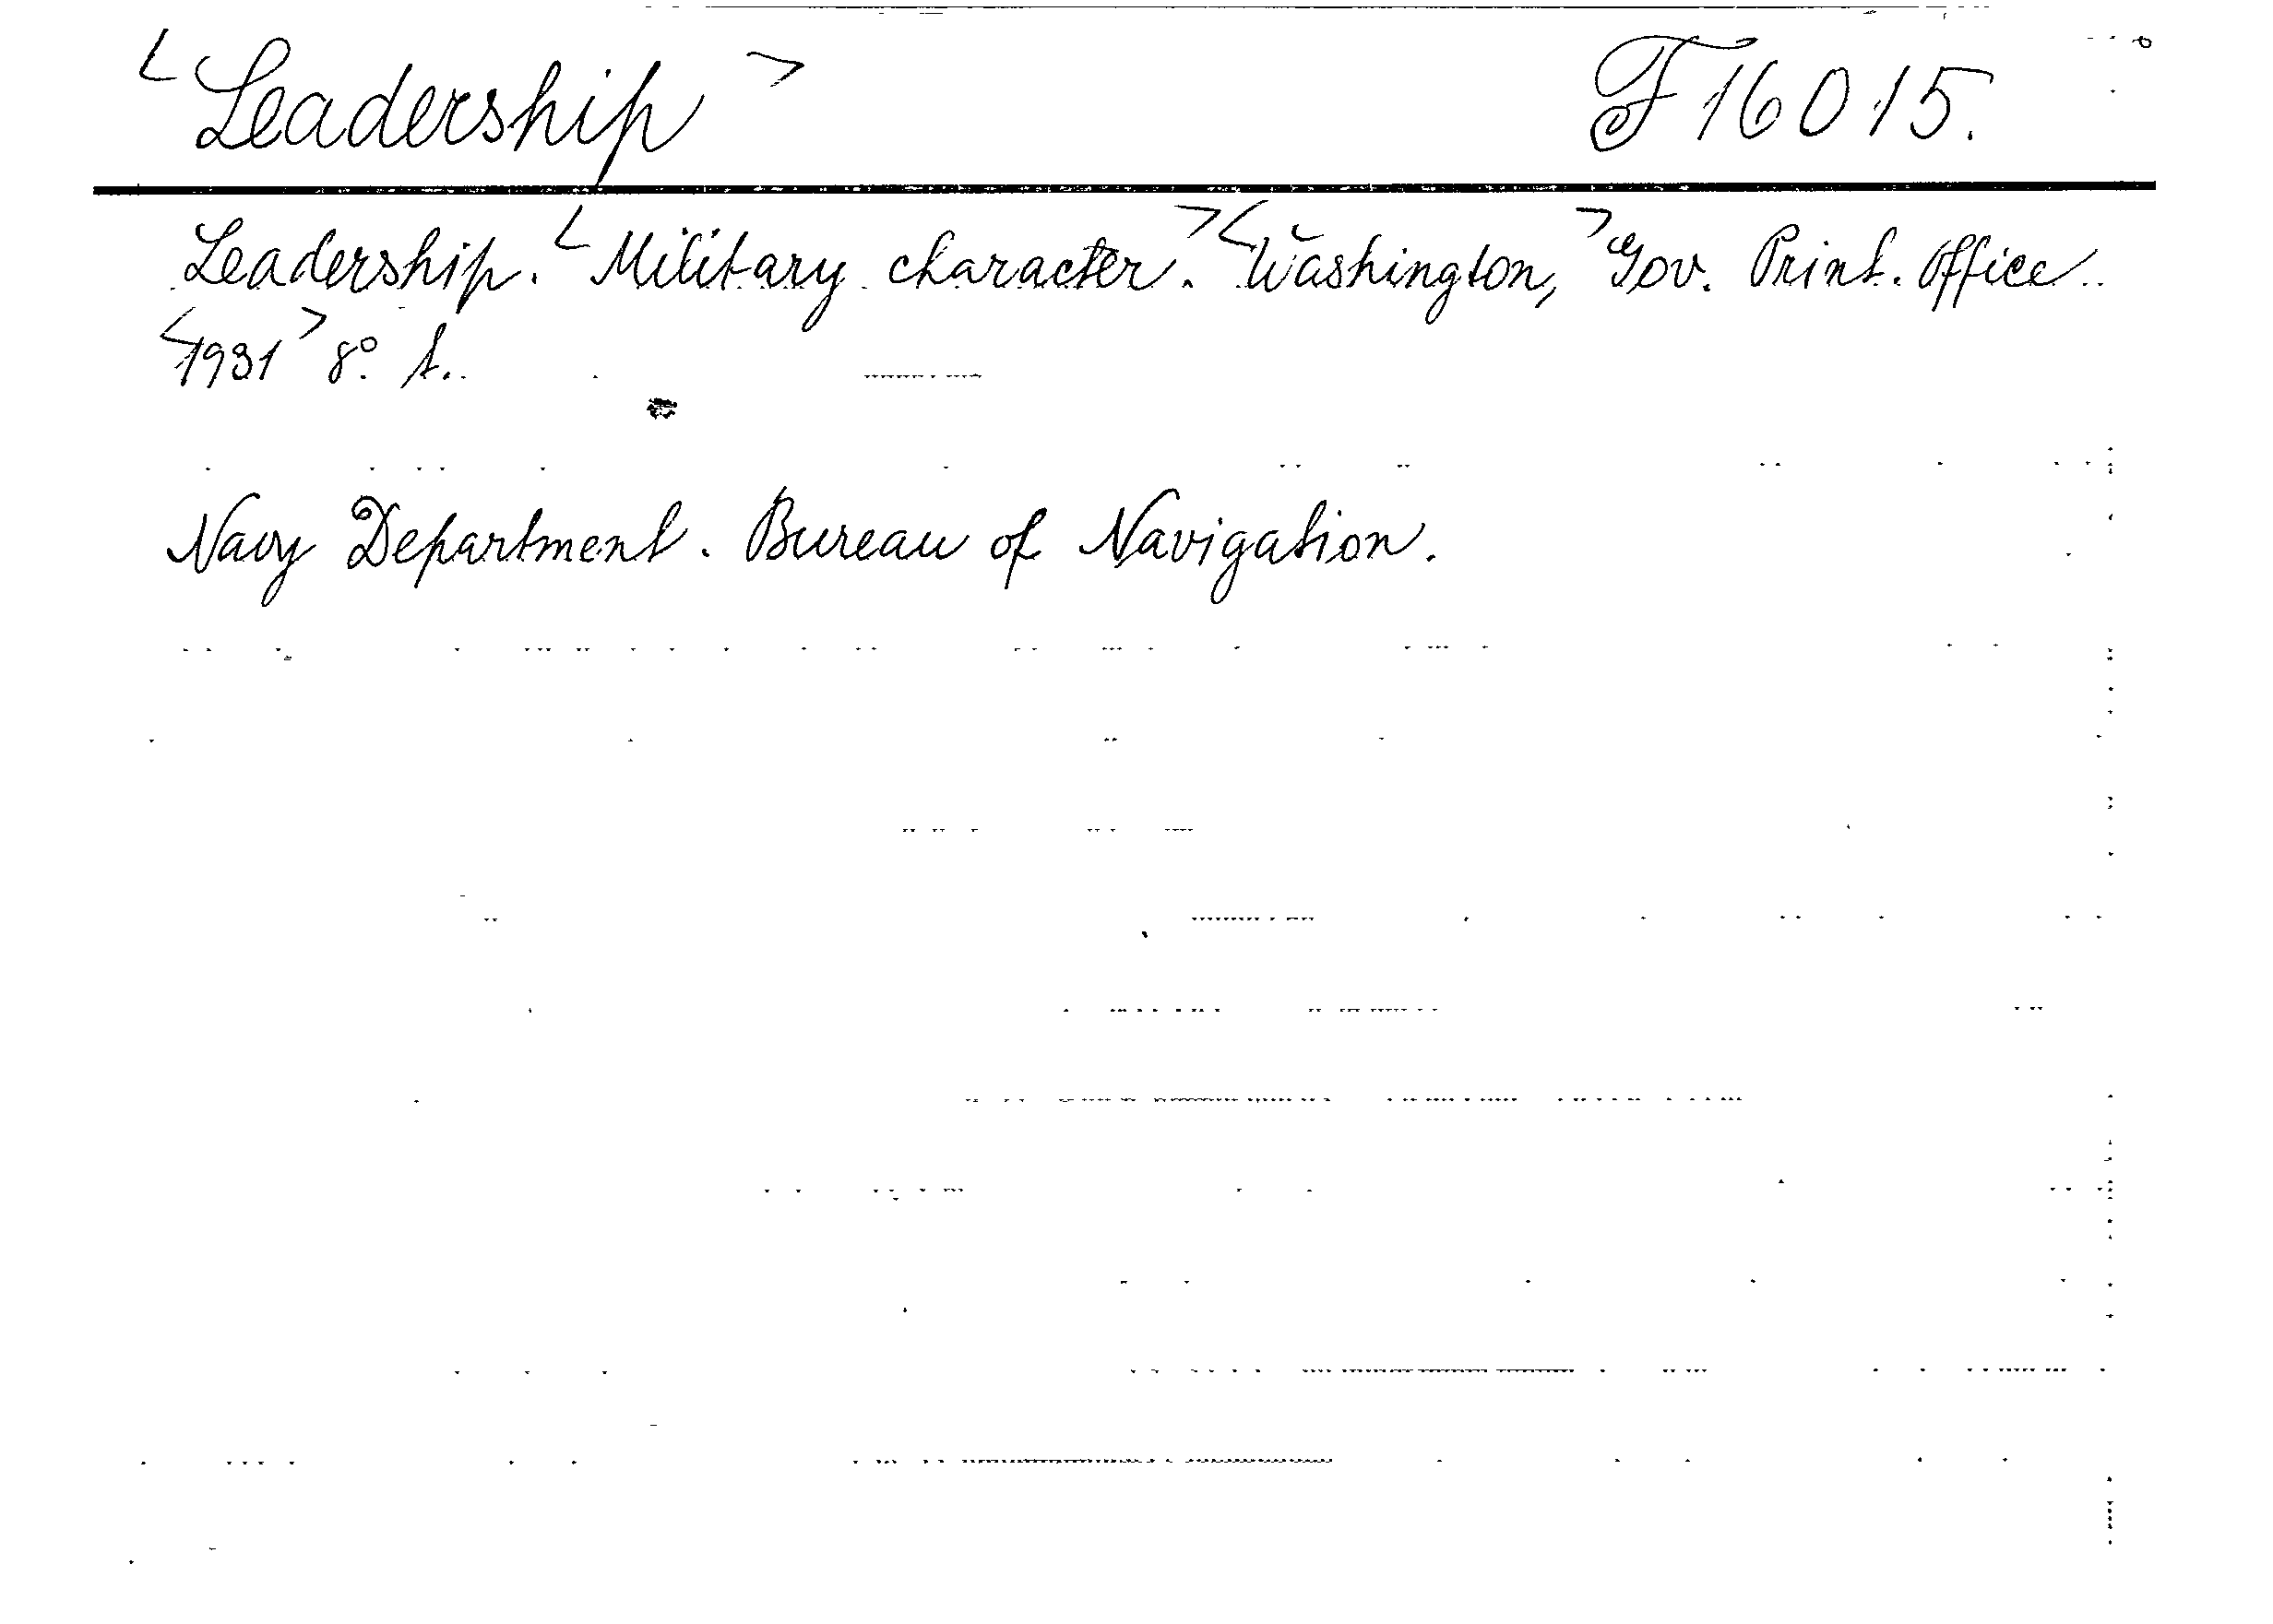 <Leadership> F16015.
Leadership. <Military character.> <Washington,> Gov. Print. Office.
<1931> 8° t.
Navy Department. Bureau of Navigation.